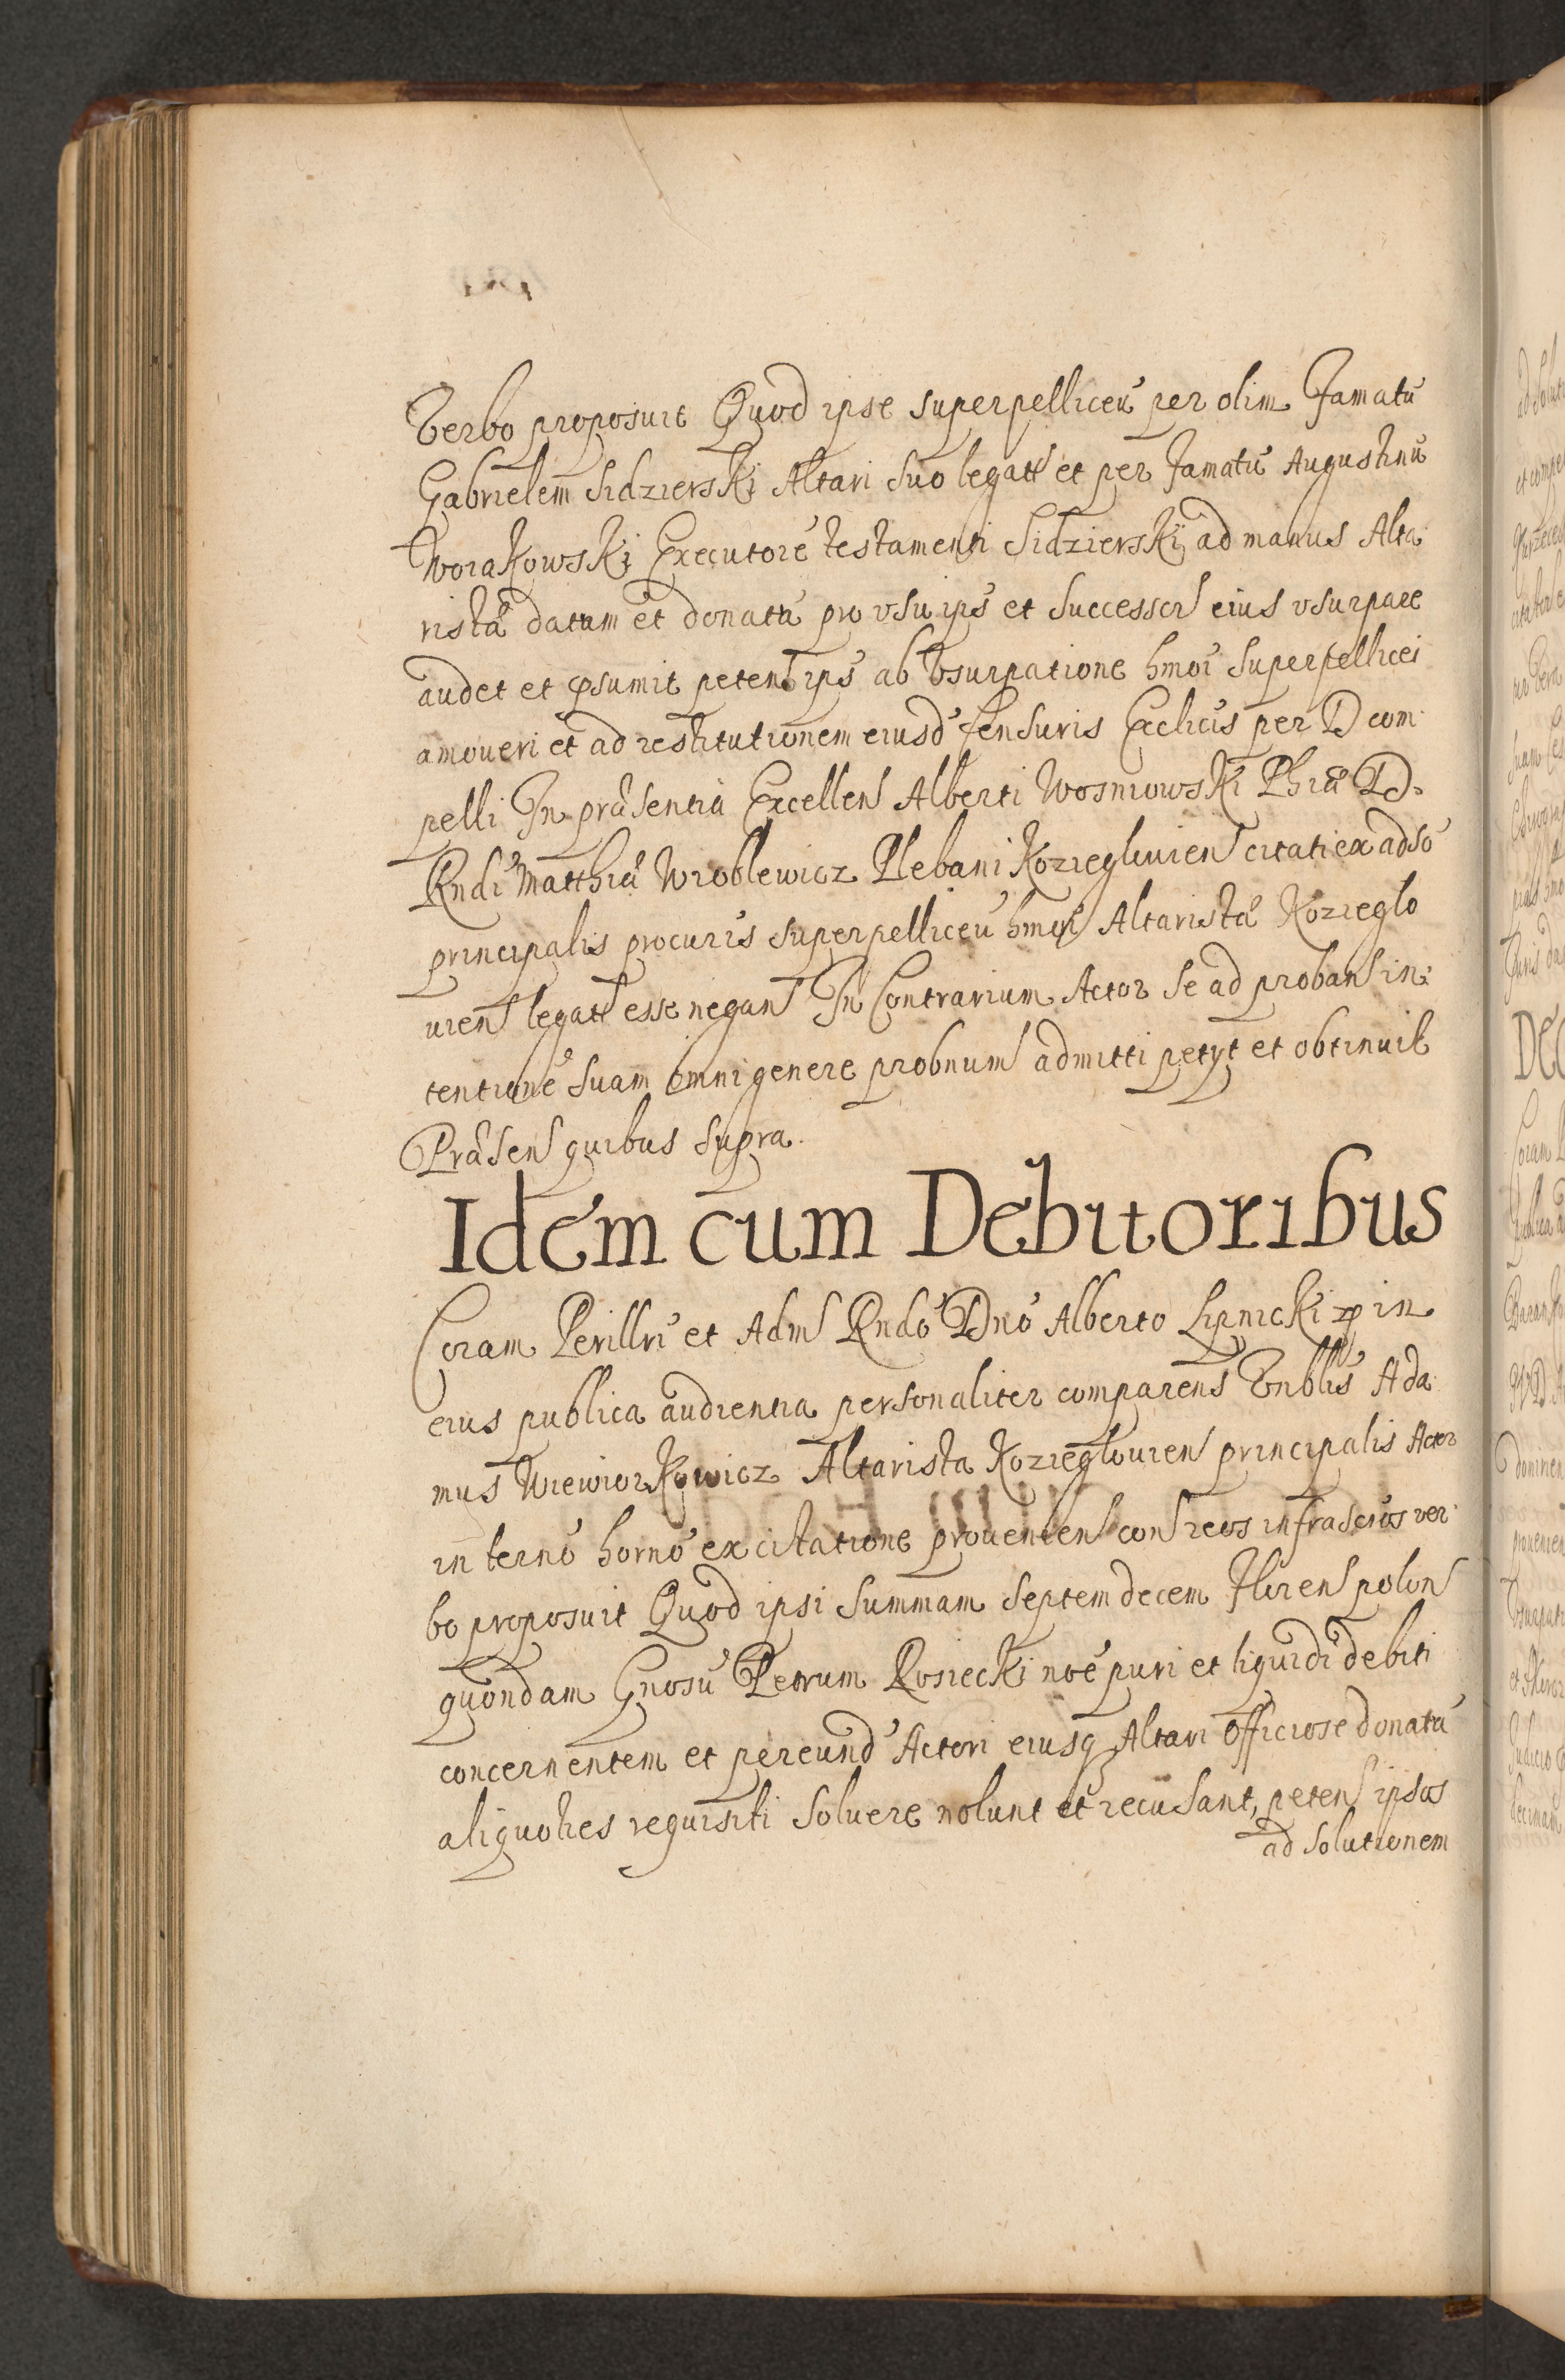 Verbo proposuit Quod ipse superpelliceū per olim Famatū
Gabrielem Sidzierski Altari suo legatt et per Famatū Augustinū
Worakowski Executorē testamenti Sidzierskij ad manus Alta
ristæ datum et donatū pro vsu ips̄ et successor eius vsurpare
audet et p̄sumit peten ips̄ ab Vsurpatione hmōi superpellicei
amoueri et ad restitutionem eiusd̄ Censuris Ecclicis per D com
pelli In præsentia Excellen Alberti Wosniowski Phiæ D.
Rndi Matthiæ Wroblewicz Plebani Koziegluuien citati ex adso
principalis procuris superpelliceū hmōi Altaristæ Kozieglo
uien legatt esse negan In Contrarium Actor se ad proban in
tentionē suam omni genere probnum admitti petyt et obtinuit
Præsen quibus supra.
Idem cum Debitoribus
Coram Perillri et Adm Rndō Dnō Alberto Lipnicki in
eius publica audientia personaliter comparens Vnblis Ada
mus Wiewiorkowicz Altarista Kozieglouien principalis Actor
in ternō hornō ex citatione prouenten con reos infrascrōs ver
bo proposuit Quod ipsi summam septemdecem Floren polon
quondam Gnosū Petrum Rosiecki noē puri et liquidi debiti
concernentem et per eund̄ Actori eiusq Altari officiose donatā
aliquoties requisiti soluere nolunt et recusant, peten ipsos
ad solutionem